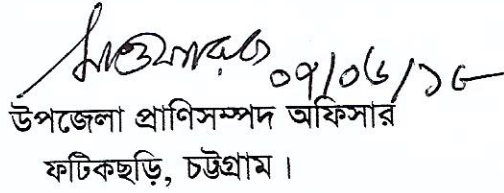 ০৭/০৬/১৮
উপজেলা প্রাণিসম্পদ অফিসার
ফটিকছড়ি, চট্টগ্রাম।